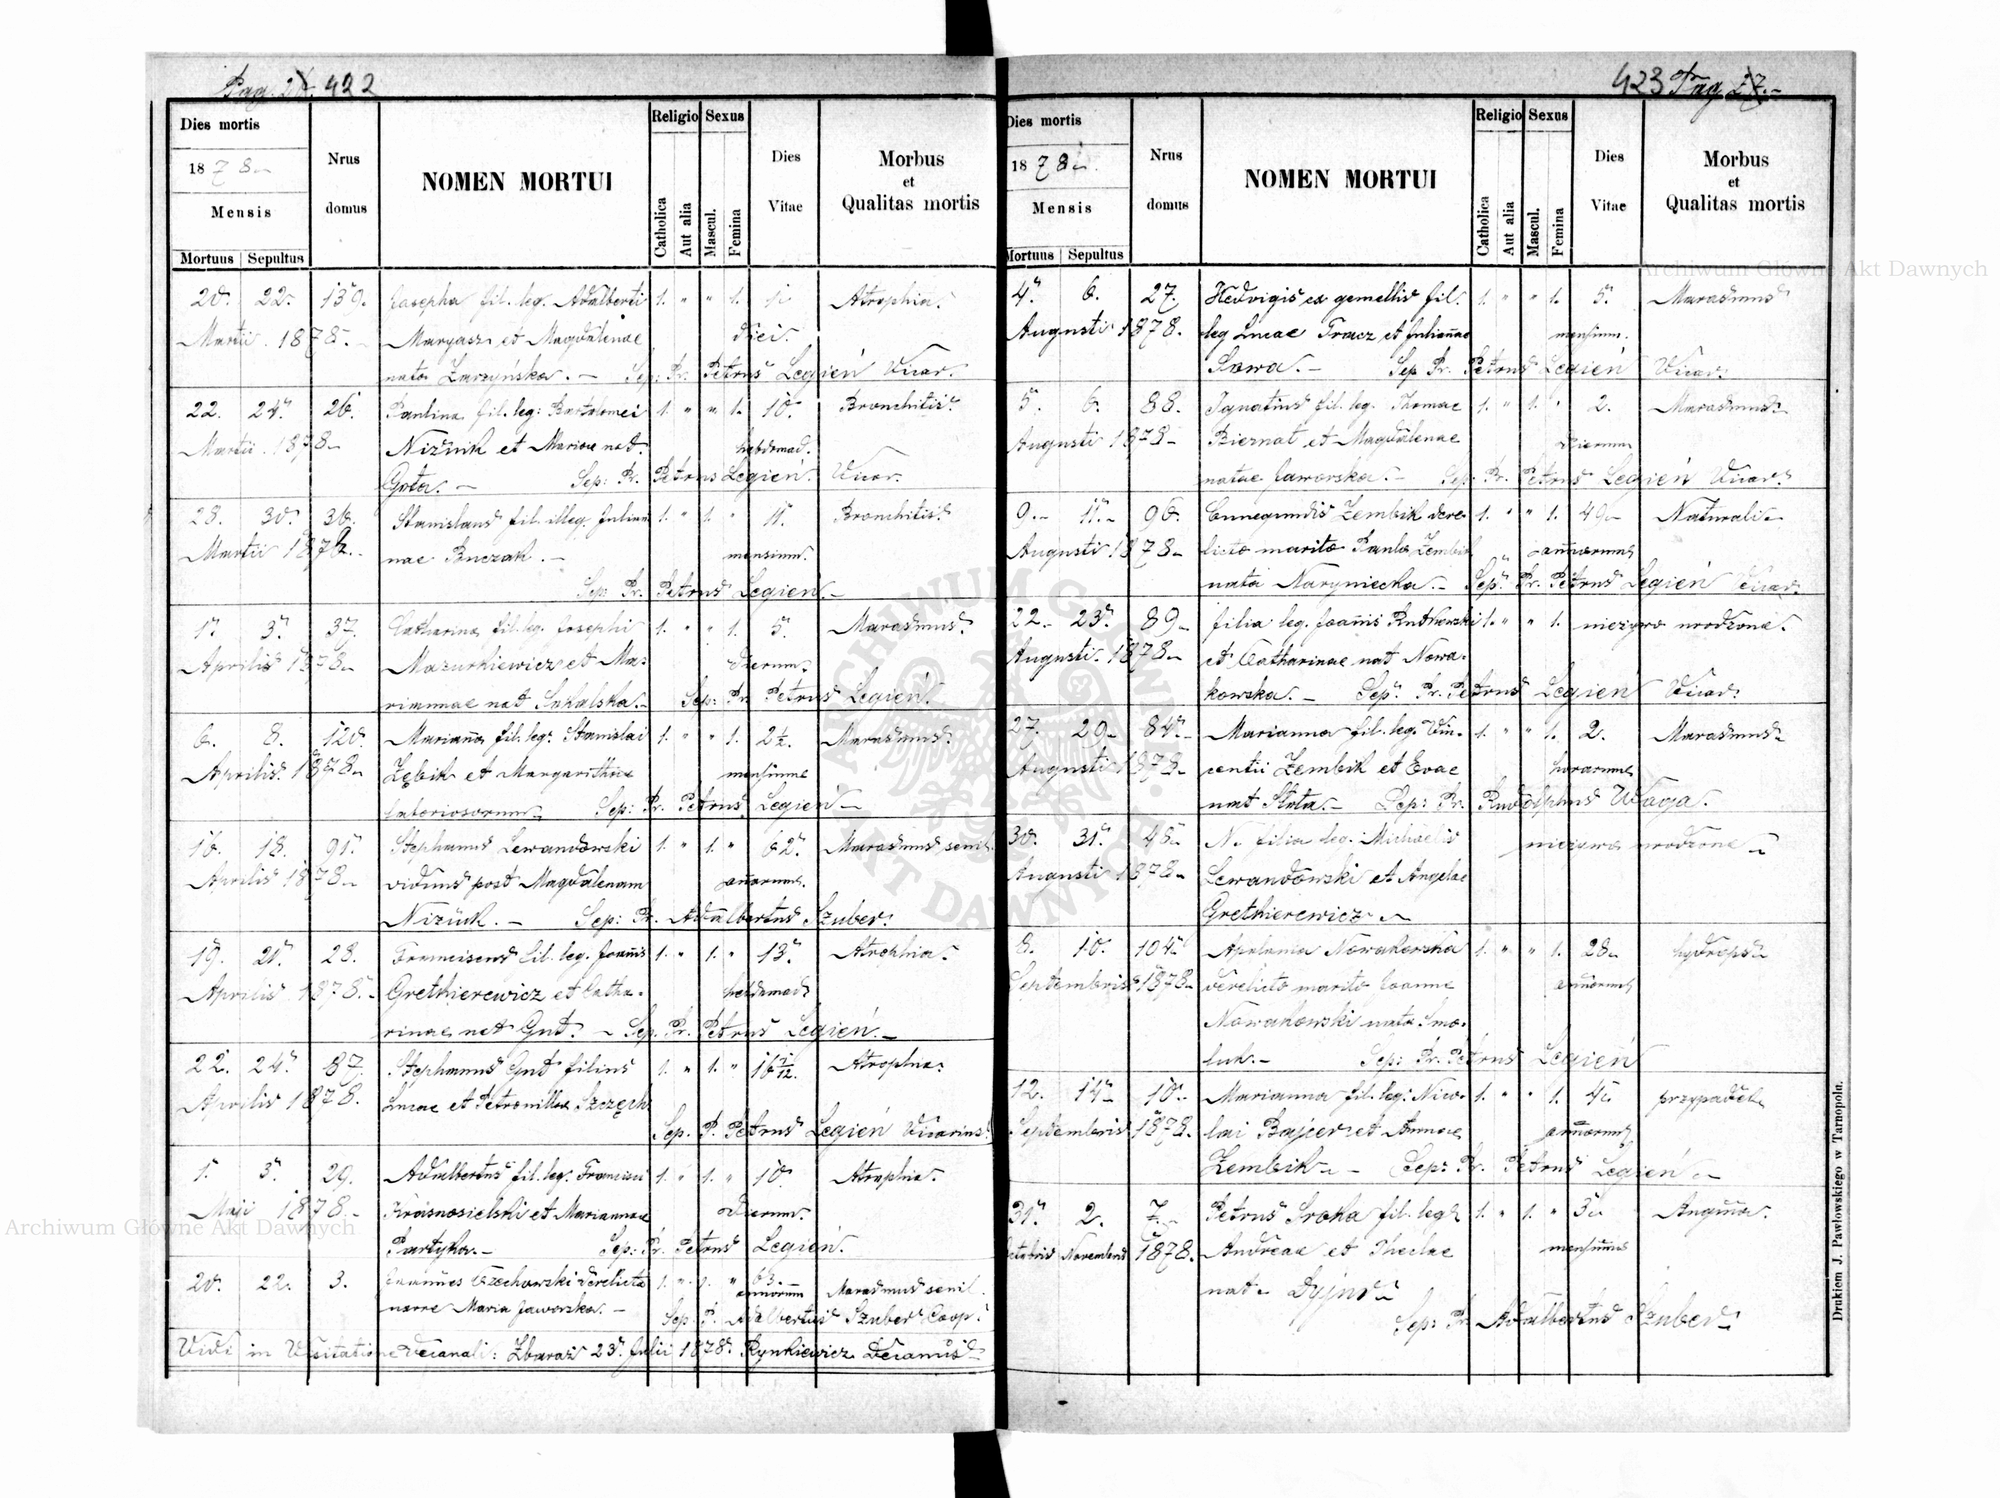 Pag. 422
Dies mortis
1878.
Mensis
Mortuus Sepultus
Nrus domus
NOMEN MORTUI
Religio
Catholica
Aut alia
Sexus
Mascul.
Femina
Dies Vitae
Morbus et Qualitas mortis
20. 22. 139. Josepha fil. leg. Adalberti 1. " " 1. 1. Atrophia.
Martii 1878. Maryasz et Magdalenae diei.
nata Zarzyńska. Sep: Pr. Petrus Legień Vicar.
22. 24. 26. Paulina fil. leg: Bartolomei 1. " " 1. 10. Bronchitis.
Martii 1878 Niziuk et Mariae nat. hebdomad.
Gota. Sep: Pr. Petrus Legień. Vicar.
28. 30. 36. Stanislaus fil. illeg. Julian 1. " 1. " 11. Bronchitis.
Martii 1878. nae Buczak. mensium.
Sep: Pr. Petrus Legień.
1. 3. 37. Catharina fil. leg. Josephi 1. " " 1. 5. Marasmus.
Aprilis 1878 Mazurkiewicz et Ma-
riannae nat Sukalska. dierum. Sep: Pr. Petrus Legień.
6. 8. 120. Marianna fil. leg. Stanislai 1. " " 1. 2½. Marasmus.
Aprilis 1878 Zębik et Margarithae mensium
laboriosorum Sep: Pr. Petrus Legień
16. 18. 91. Stephanus Lewandowski 1. " 1. " 62. Marasmus senil.
Aprilis 1878 viduus post Magdalenam annorum.
Niziuk. Sep: Pr. Adalbertus Szuber.
19. 21. 28. Franciscus fil. leg. Joannis 1. " 1. " 13. Atrophia.
Aprilis 1878. Gretkierewicz et Catha- hebdomad.
rinae nat Gut. Sep. Pr. Petrus Legień.
22. 24. 87. Stephanus Gut filius 1. " 1. " Atrophia.
Aprilis 1878. Lucae et Petronilla
Sep. P. Petrus Legień Vicarius.
1. 3. 29. Adalbertus fil. leg. Francisci 1. " 1. " 10. Atrophia.
Maji 1878. Krasnosielski et Mariannae dierum.
Partyka. Sep: Pr. Petrus Legień.
20. 22. 3. Joannes Czechowski derelicta 1. " 1. " 63. annorum Marasmus senil.
Maria Jaworska. Sep. P. Adalbertus Szuber Coop.
Vidi in Visitatione decanali: Zbaraż 23. Julii 1878. Rynkiewicz Decanus
423 Pag 27.
Dies mortis
1878.
Mensis
Mortuus Sepultus
Nrus domus
NOMEN MORTUI
Religio
Catholica
Aut alia
Sexus
Mascul.
Femina
Dies Vitae
Morbus et Qualitas mortis
4. 6. 27. Hedvigis ex gemellis fil. 1. " " 1. 5. Marasmus
Augusti 1878. leg Lucae Tracz et Juliannae mensium.
Sowa. Sep Pr. Petrus Legień Vicar.
5. 6. 88. Ignatius fil. leg. Thomae 1. " 1. " 2. Marasmus.
Augusti 1878 Biernat et Magdalenae dierum
natae Jaworska. Sep. Pr. Petrus Legień Vicar.
9. 11. 96. Cunegundis Zembik dere- 1. " " 1. 49 Naturalis
Augusti 1878 licto marito Paulo Zembik annorum
nata Naryniecka. Sep. Pr. Petrus Legień Vicar.
22. 23. 89 filia leg. Joannis Rutkowski 1. " " 1. nieżywo urodzone.
Augusti. 1878. et Catharinae nat Nowa-
kowska. Sep. Pr. Petrus Legień Vicar.
27. 29. 84. Marianna fil. leg. Vin- 1. " " 1. 2. Marasmus
Augusti 1878. centii Zembik et Evae horarum
nat Slota. Sep: Pr. Rudolphus Waga.
30. 31. 48. N. filia leg. Michaelis nieżywo urodzone
Augusti 1878. Lewandowski et Angelae
Gretkierewicz
8. 10. 104. Apolonia Nowakowska 1. " " 1. 28. hydrops
Septembris 1878 derelicto marito Joanne annorum
Nowakowski nata Smo-
luk. Sep: Pr. Petrus Legień
12. 14. 10. Marianna fil. leg: Nico- 1. " " 1. 4. przypadek
Septembris 1878. lai Bajcer et Annae annorum
Zembik. Sep: Pr. Petrus Legień.
31. 2. 7. Petrus Sroka fil. leg. 1. " 1. " 3. Angina.
Octobris Novembris 1878. Andreae et Theclae mensium
nat.
Sep: Pr. Adalbertus Szuber.
Drukiem J. Pawłowskiego w Tarnopolu.
Archiwum Główne Akt Dawnych
Archiwum Główne Akt Dawnych
ARCHIWUM GŁÓWNE AKT DAWNYCH